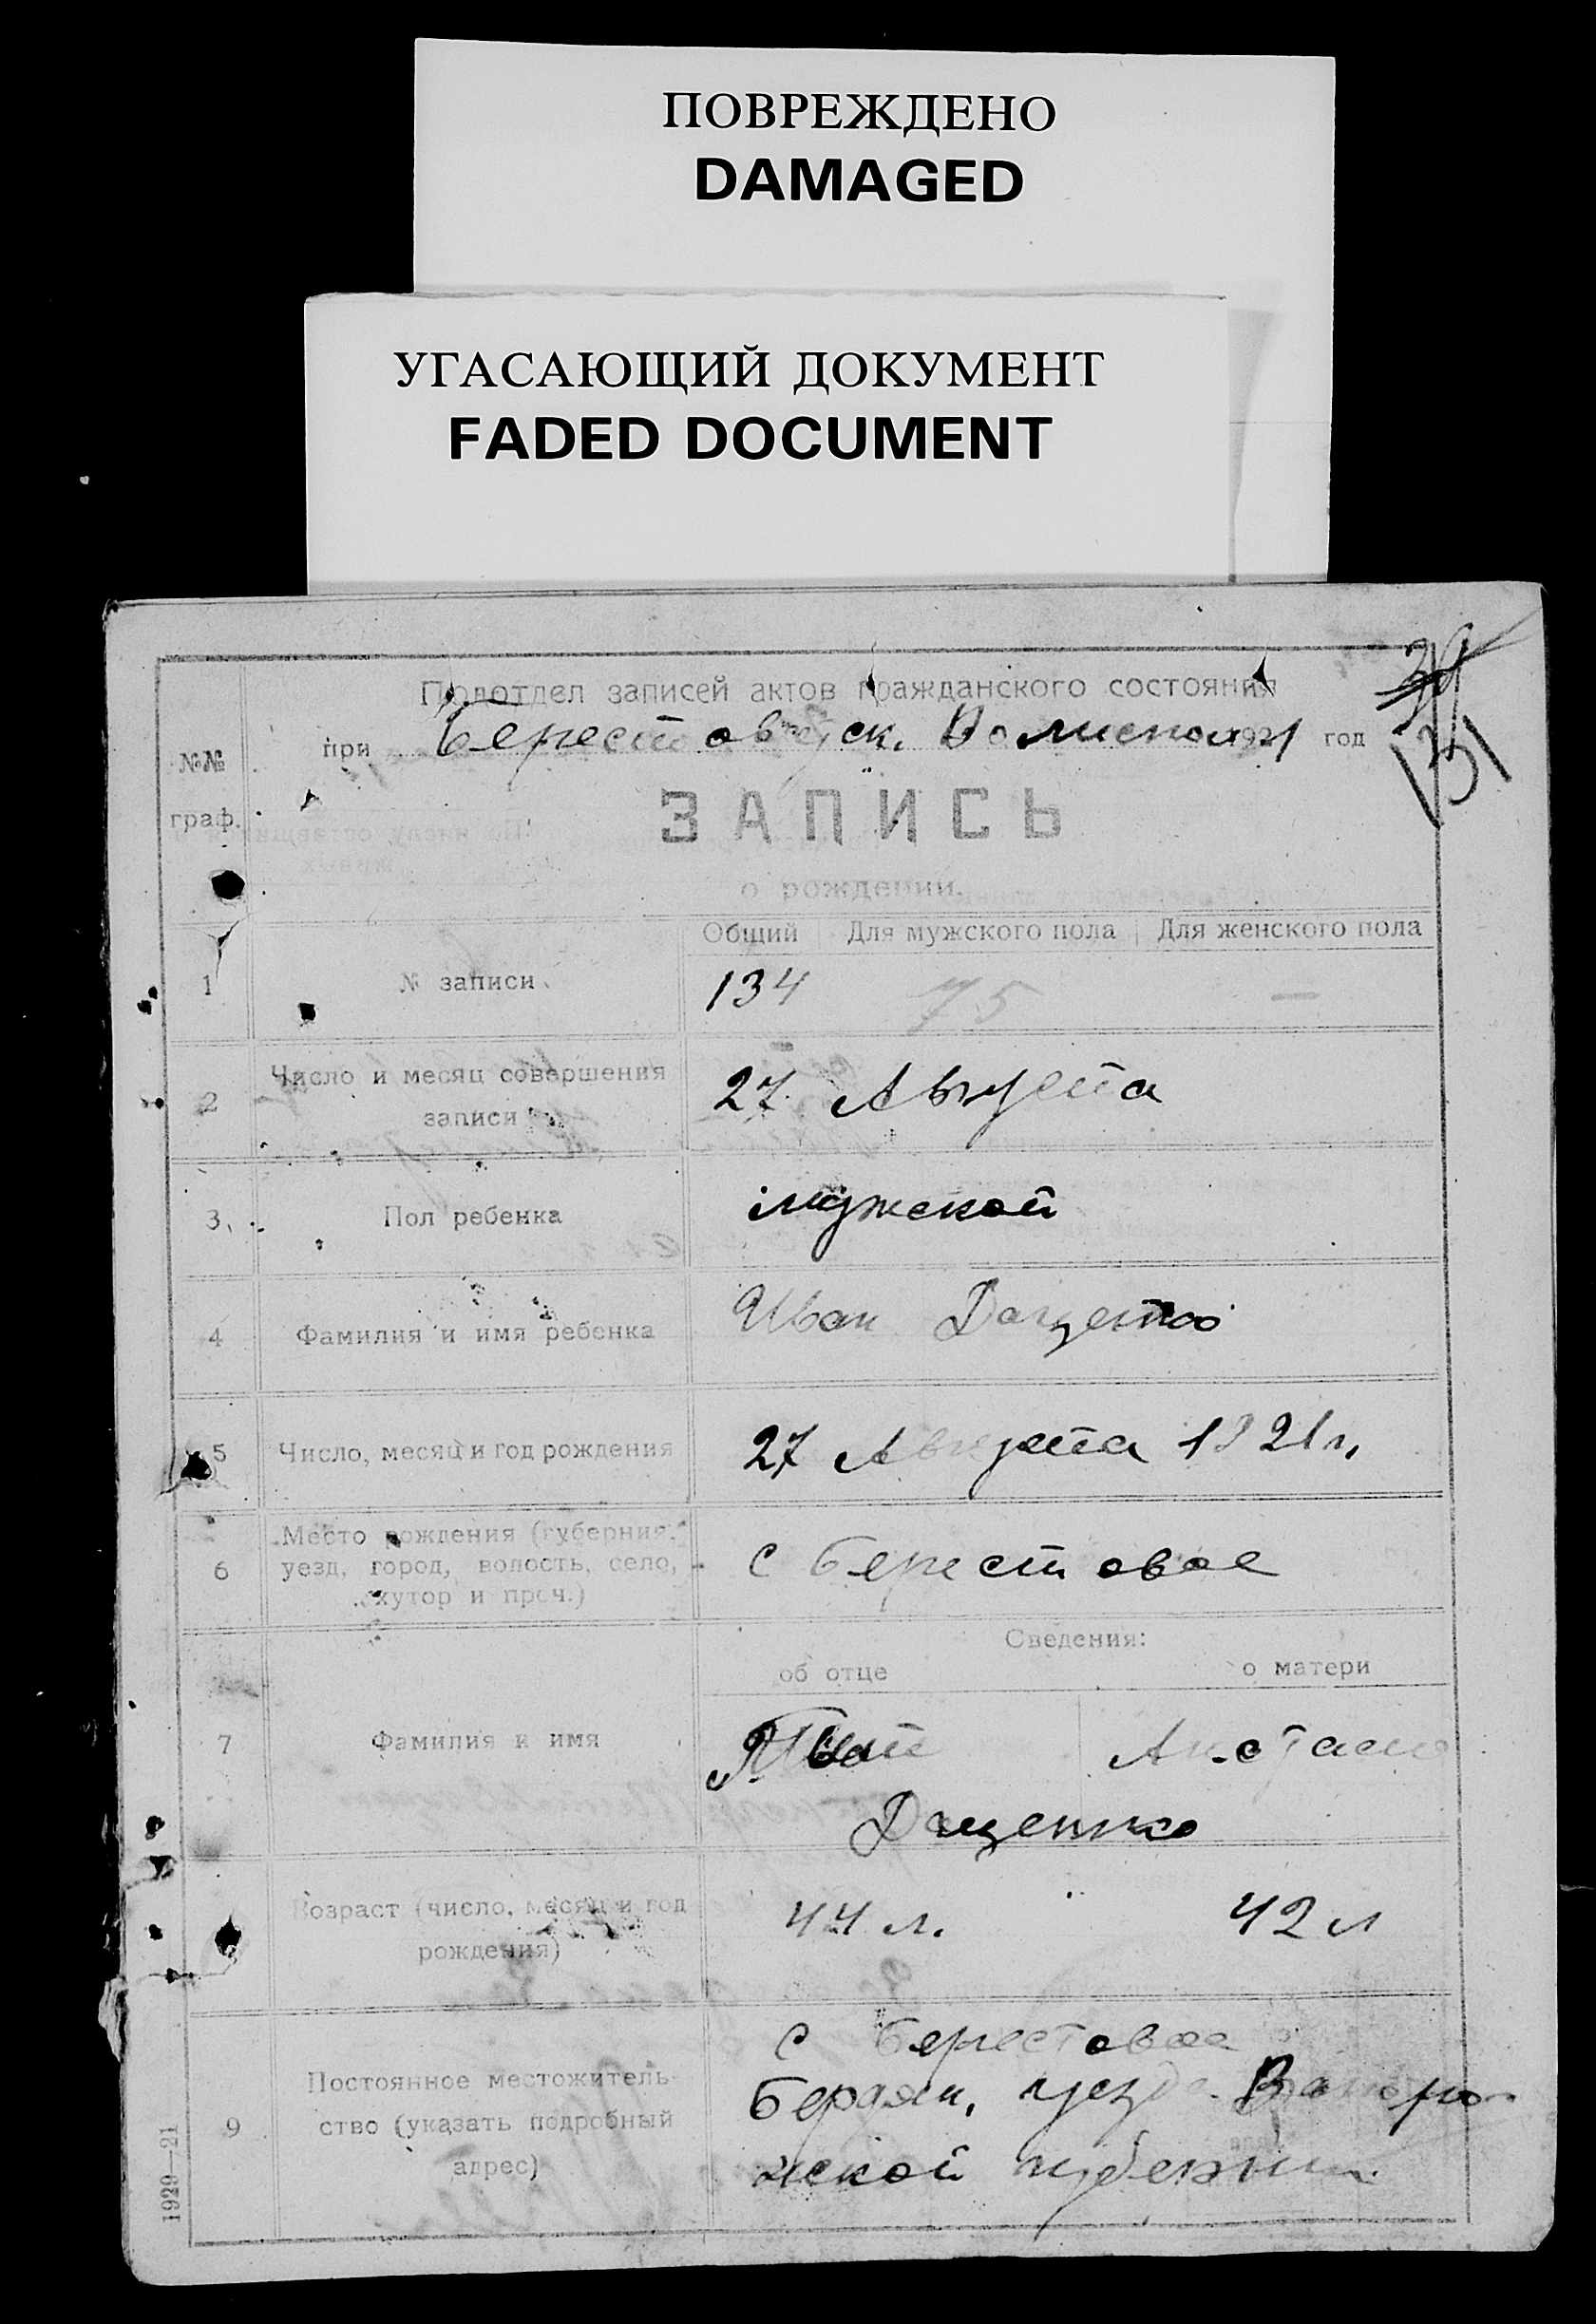 ПОВРЕЖДЕНО
DAMAGED
УГАСАЮЩИЙ ДОКУМЕНТ
FADED DOCUMENT
39
131
Подотдел записей актов гражданского состояния
при Берестовск. Волисполк 1921 год
№№
граф.
ЗАПИСЬ
о рождении.
Общий Для мужского пола Для женского пола
1 № записи 134 75 —
2 Число и месяц совершения
записи 27 Августа
3 Пол ребенка мужской
4 Фамилия и имя ребенка Иван Даценко
5 Число, месяц и год рождения 27 Августа 1921 г,
6 Место рождения (губерния,
уезд, город, волость, село,
хутор и проч.) с Берестовое
Сведения:
об отце о матери
7 Фамилия и имя
Даценко
Возраст (число, месяц и год
рождения) 44 л. 42 л
9 Постоянное местожитель-
ство (указать подробный
адрес)
с Берестовое
Бердян. уезда Запоро
жской губернии
1929—21